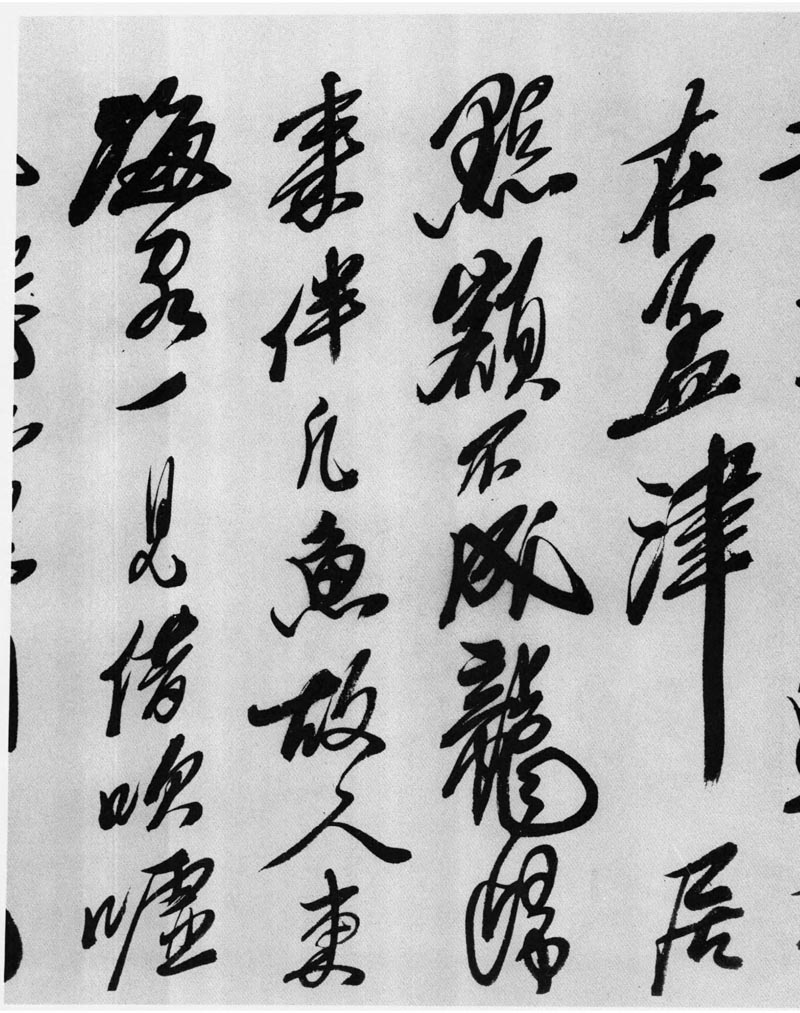 在孟津居
點額不成龍歸
來伴凡魚故人東
海客一見借吹噓